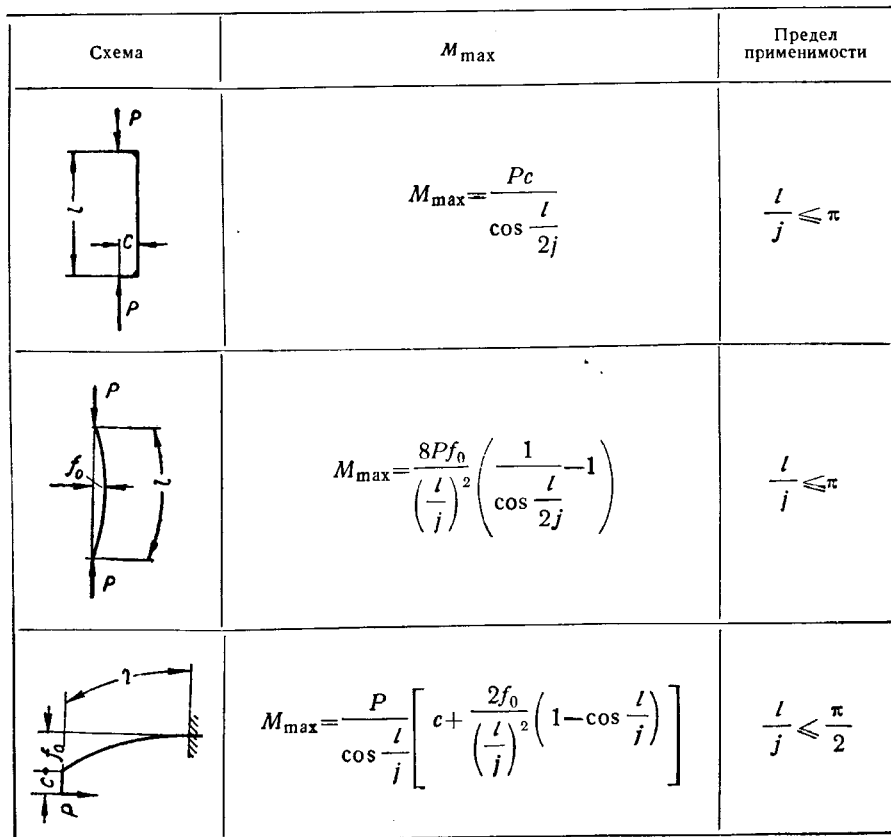 Схема M_max Предел применимости
P
l
C
P
M_max = Pc / cos(l/2j)
l/j ⩽ π
P
f₀
l
P
M_max = 8Pf₀ / (l/j)² (1 / cos(l/2j) − 1)
l/j ⩽ π
l
c + f₀
P
M_max = P / cos(l/j) [c + 2f₀ / (l/j)² (1 − cos(l/j))]
l/j ⩽ π/2